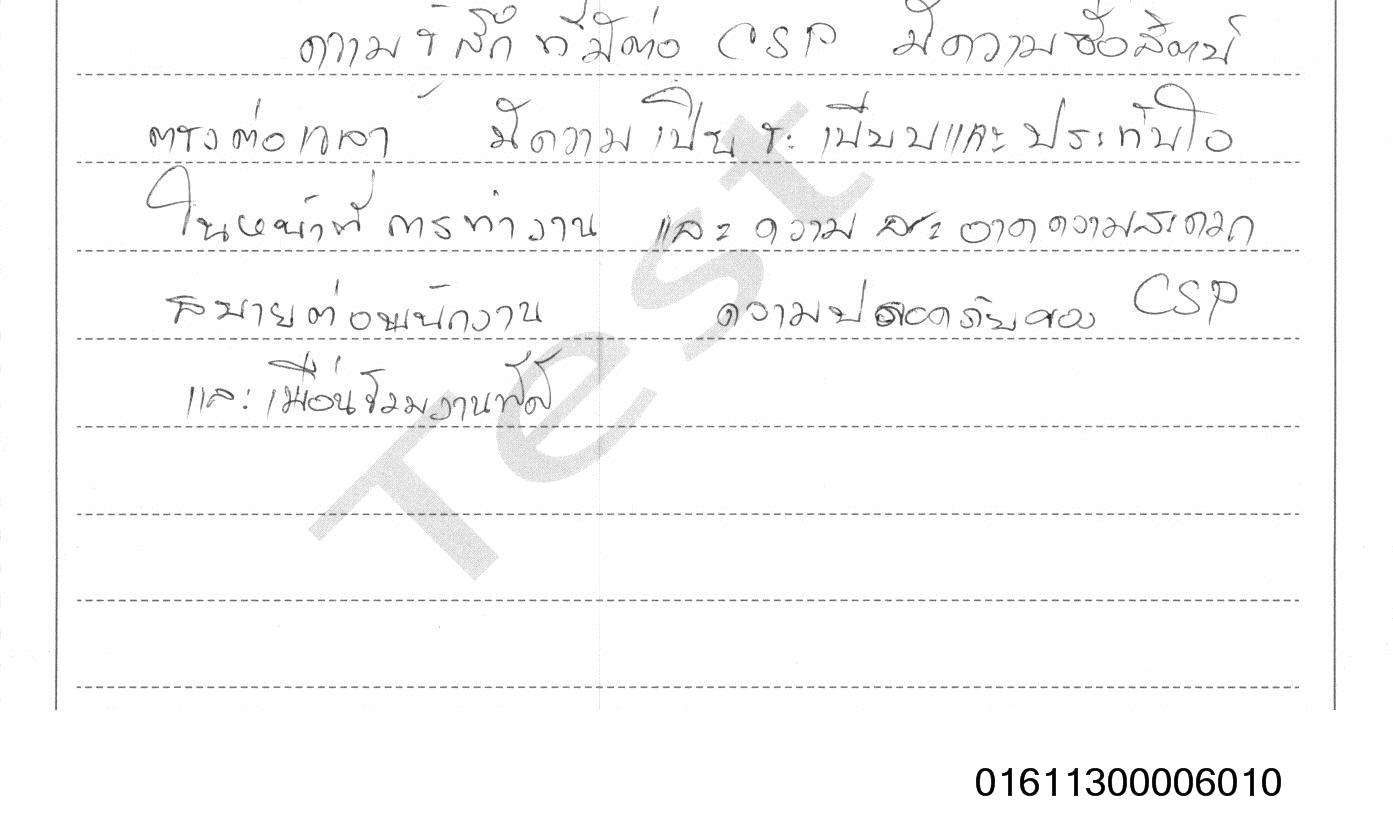 ความรู้สึกที่มีต่อ CSP มีความซื่อสัตย์
ตรงต่อเวลา มีความเป็นระเบียบและประทับใจ
ในหน้าที่การทำงาน และความสะอาดความสะดวก
สบายต่อพนักงาน ความปลอดภัยของ CSP
และเพื่อนร่วมงาน
Test
01611300006010